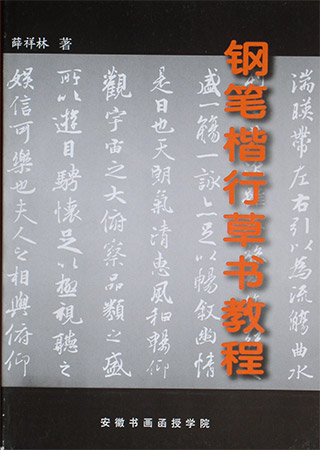 薛祥林 著
钢笔楷行草书教程
湍暎帶左右引以為流觴曲水
盛一觴一詠亦足以暢敘幽情
是日也天朗氣清惠風和暢仰
觀宇宙之大俯察品類之盛
所以遊目騁懷足以極視聽之
娛信可樂也夫人之相與俯仰
安徽书画函授学院